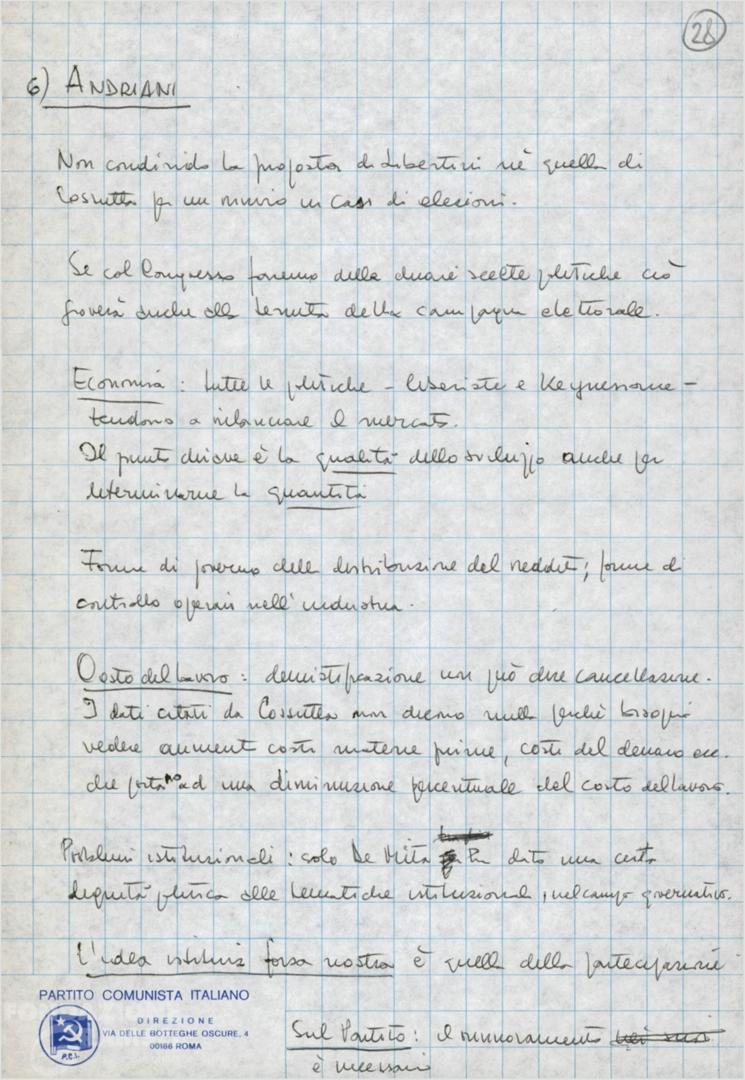 28
6) ANDRIANI
Non condivido la proposta di Libertini nè quella di
Cossutta per un rinvio in caso di elezioni.
Se col Congresso faremo delle chiare scelte politiche ciò
gioverà anche alla tenuta della campagna elettorale.
Economia : tutte le politiche - liberiste e Keynesiane -
tendono a rilanciare il mercato.
Il punto chiave è la qualità dello sviluppo anche per
determinarne la quantità
Forme di governo della distribuzione del reddito; forme di
controllo operaio nell'industria.
Costo del lavoro : demistificazione non può dire cancellazione.
I dati citati da Cossutta non dicono nulla perchè bisogna
vedere aumenti costi materie prime, costi del denaro ecc.
che portano ad una diminuzione percentuale del costo del lavoro.
Problemi istituzionali : solo De Mita ha dato una certa
dignità politica alle tematiche istituzionali, nel campo governativo.
L'idea forza nostra è quella della partecipazione
PARTITO COMUNISTA ITALIANO
DIREZIONE
VIA DELLE BOTTEGHE OSCURE, 4
00186 ROMA
P.C.I.
Sul Partito : il rinnovamento
è necessario